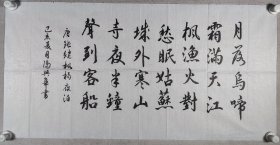 月落烏啼
霜滿天江
楓漁火對
愁眠姑蘇
城外寒山
寺夜半鐘
聲到客船
唐張繼楓橋夜泊
己亥夏月書